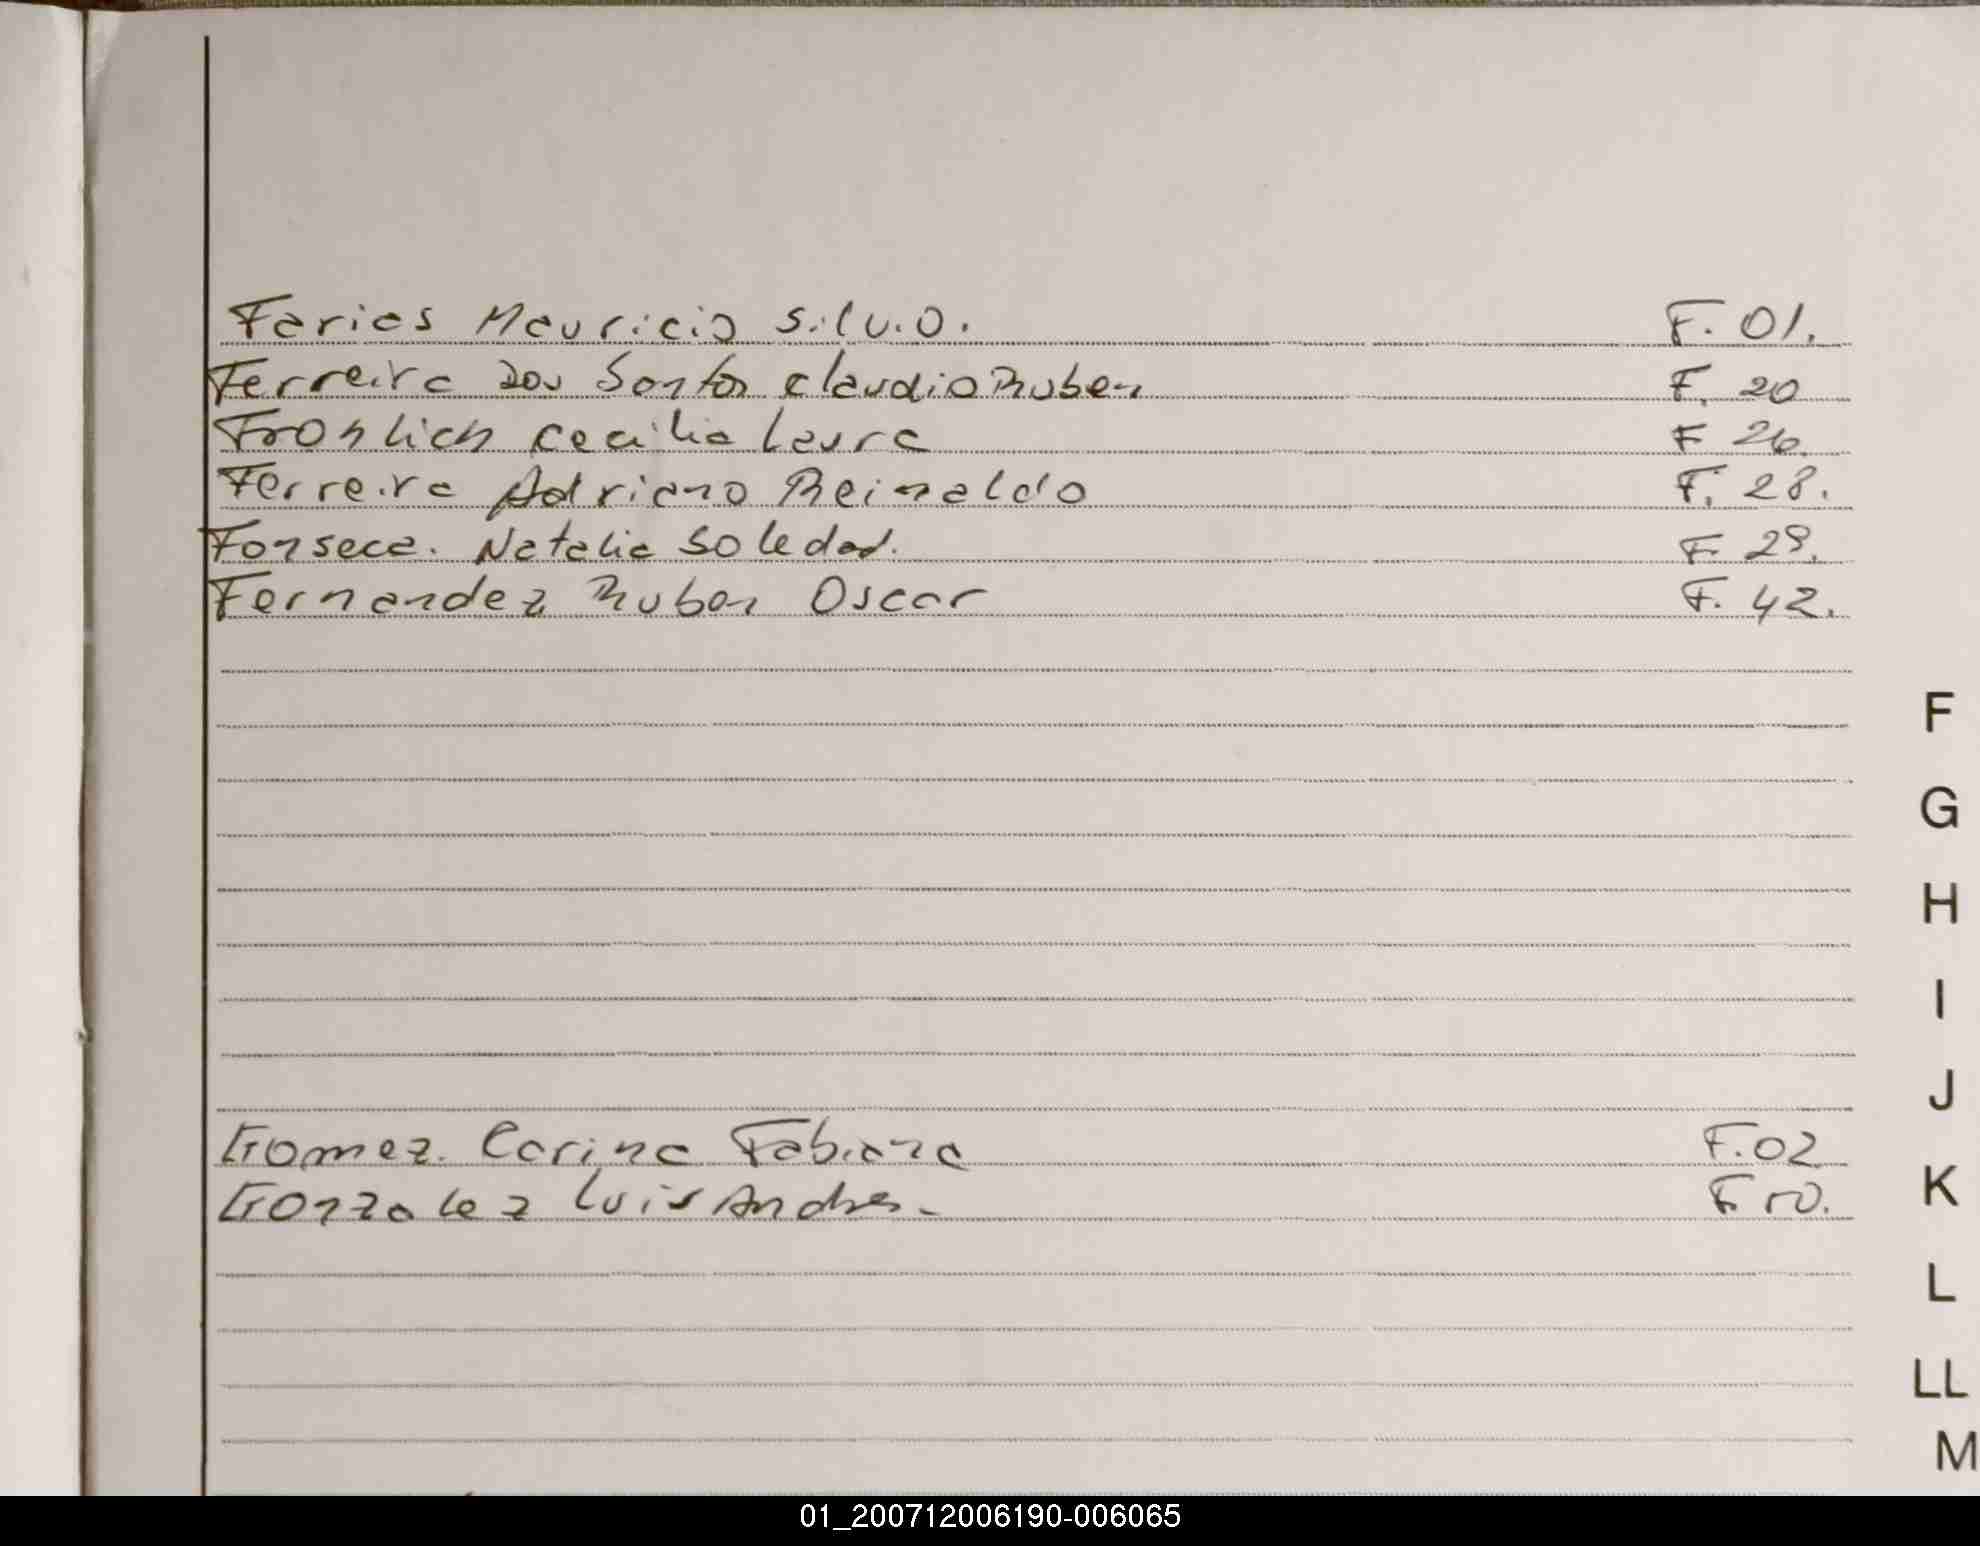 Farias Mauricio Silvio. F. 01.
Ferreira Dos Santos Claudio Ruben F. 20
Frohlich Cecilia Laura F 26.
Ferreira Adriano Reinaldo F. 28.
Fonseca. Natalia Soledad. F. 29.
Fernandez Ruben Oscar F. 42.
F
G
H
I
J
Gomez. Carina Fabiana F.02
K
Gonzalez Luis Andres. F 10.
L
LL
M
01_200712006190-006065